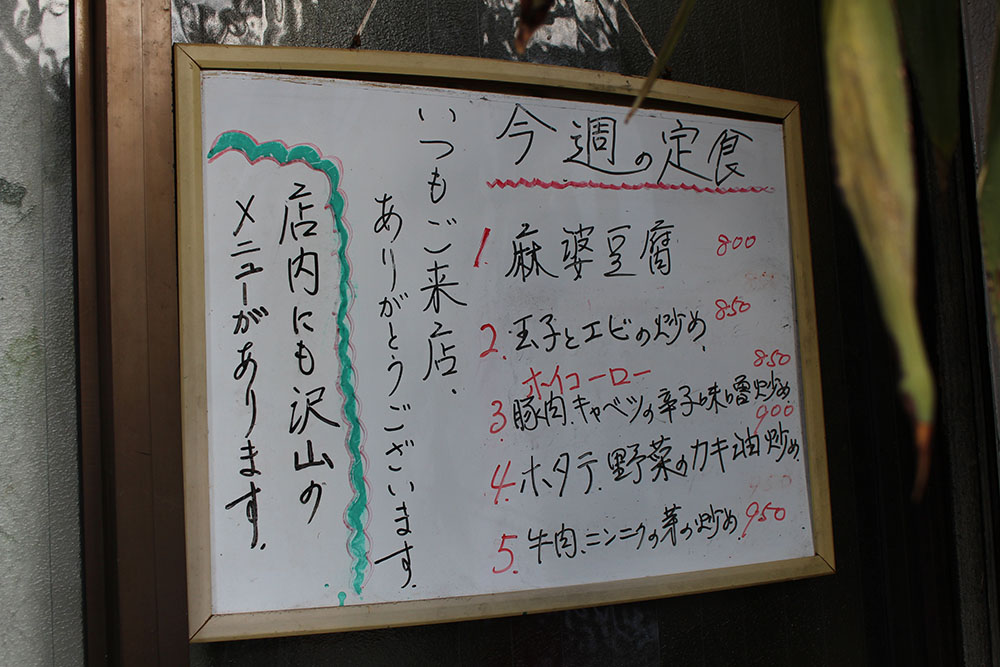 今週の定食
1. 麻婆豆腐 800
2. 玉子とエビの炒め 850
ホイコーロー
3. 豚肉、キャベツの辛子味噌炒め 850
4. ホタテ、野菜のカキ油炒め 900
5. 牛肉、ニンニクの芽の炒め 950
いつもご来店、
ありがとうございます。
店内にも沢山の
メニューがあります。